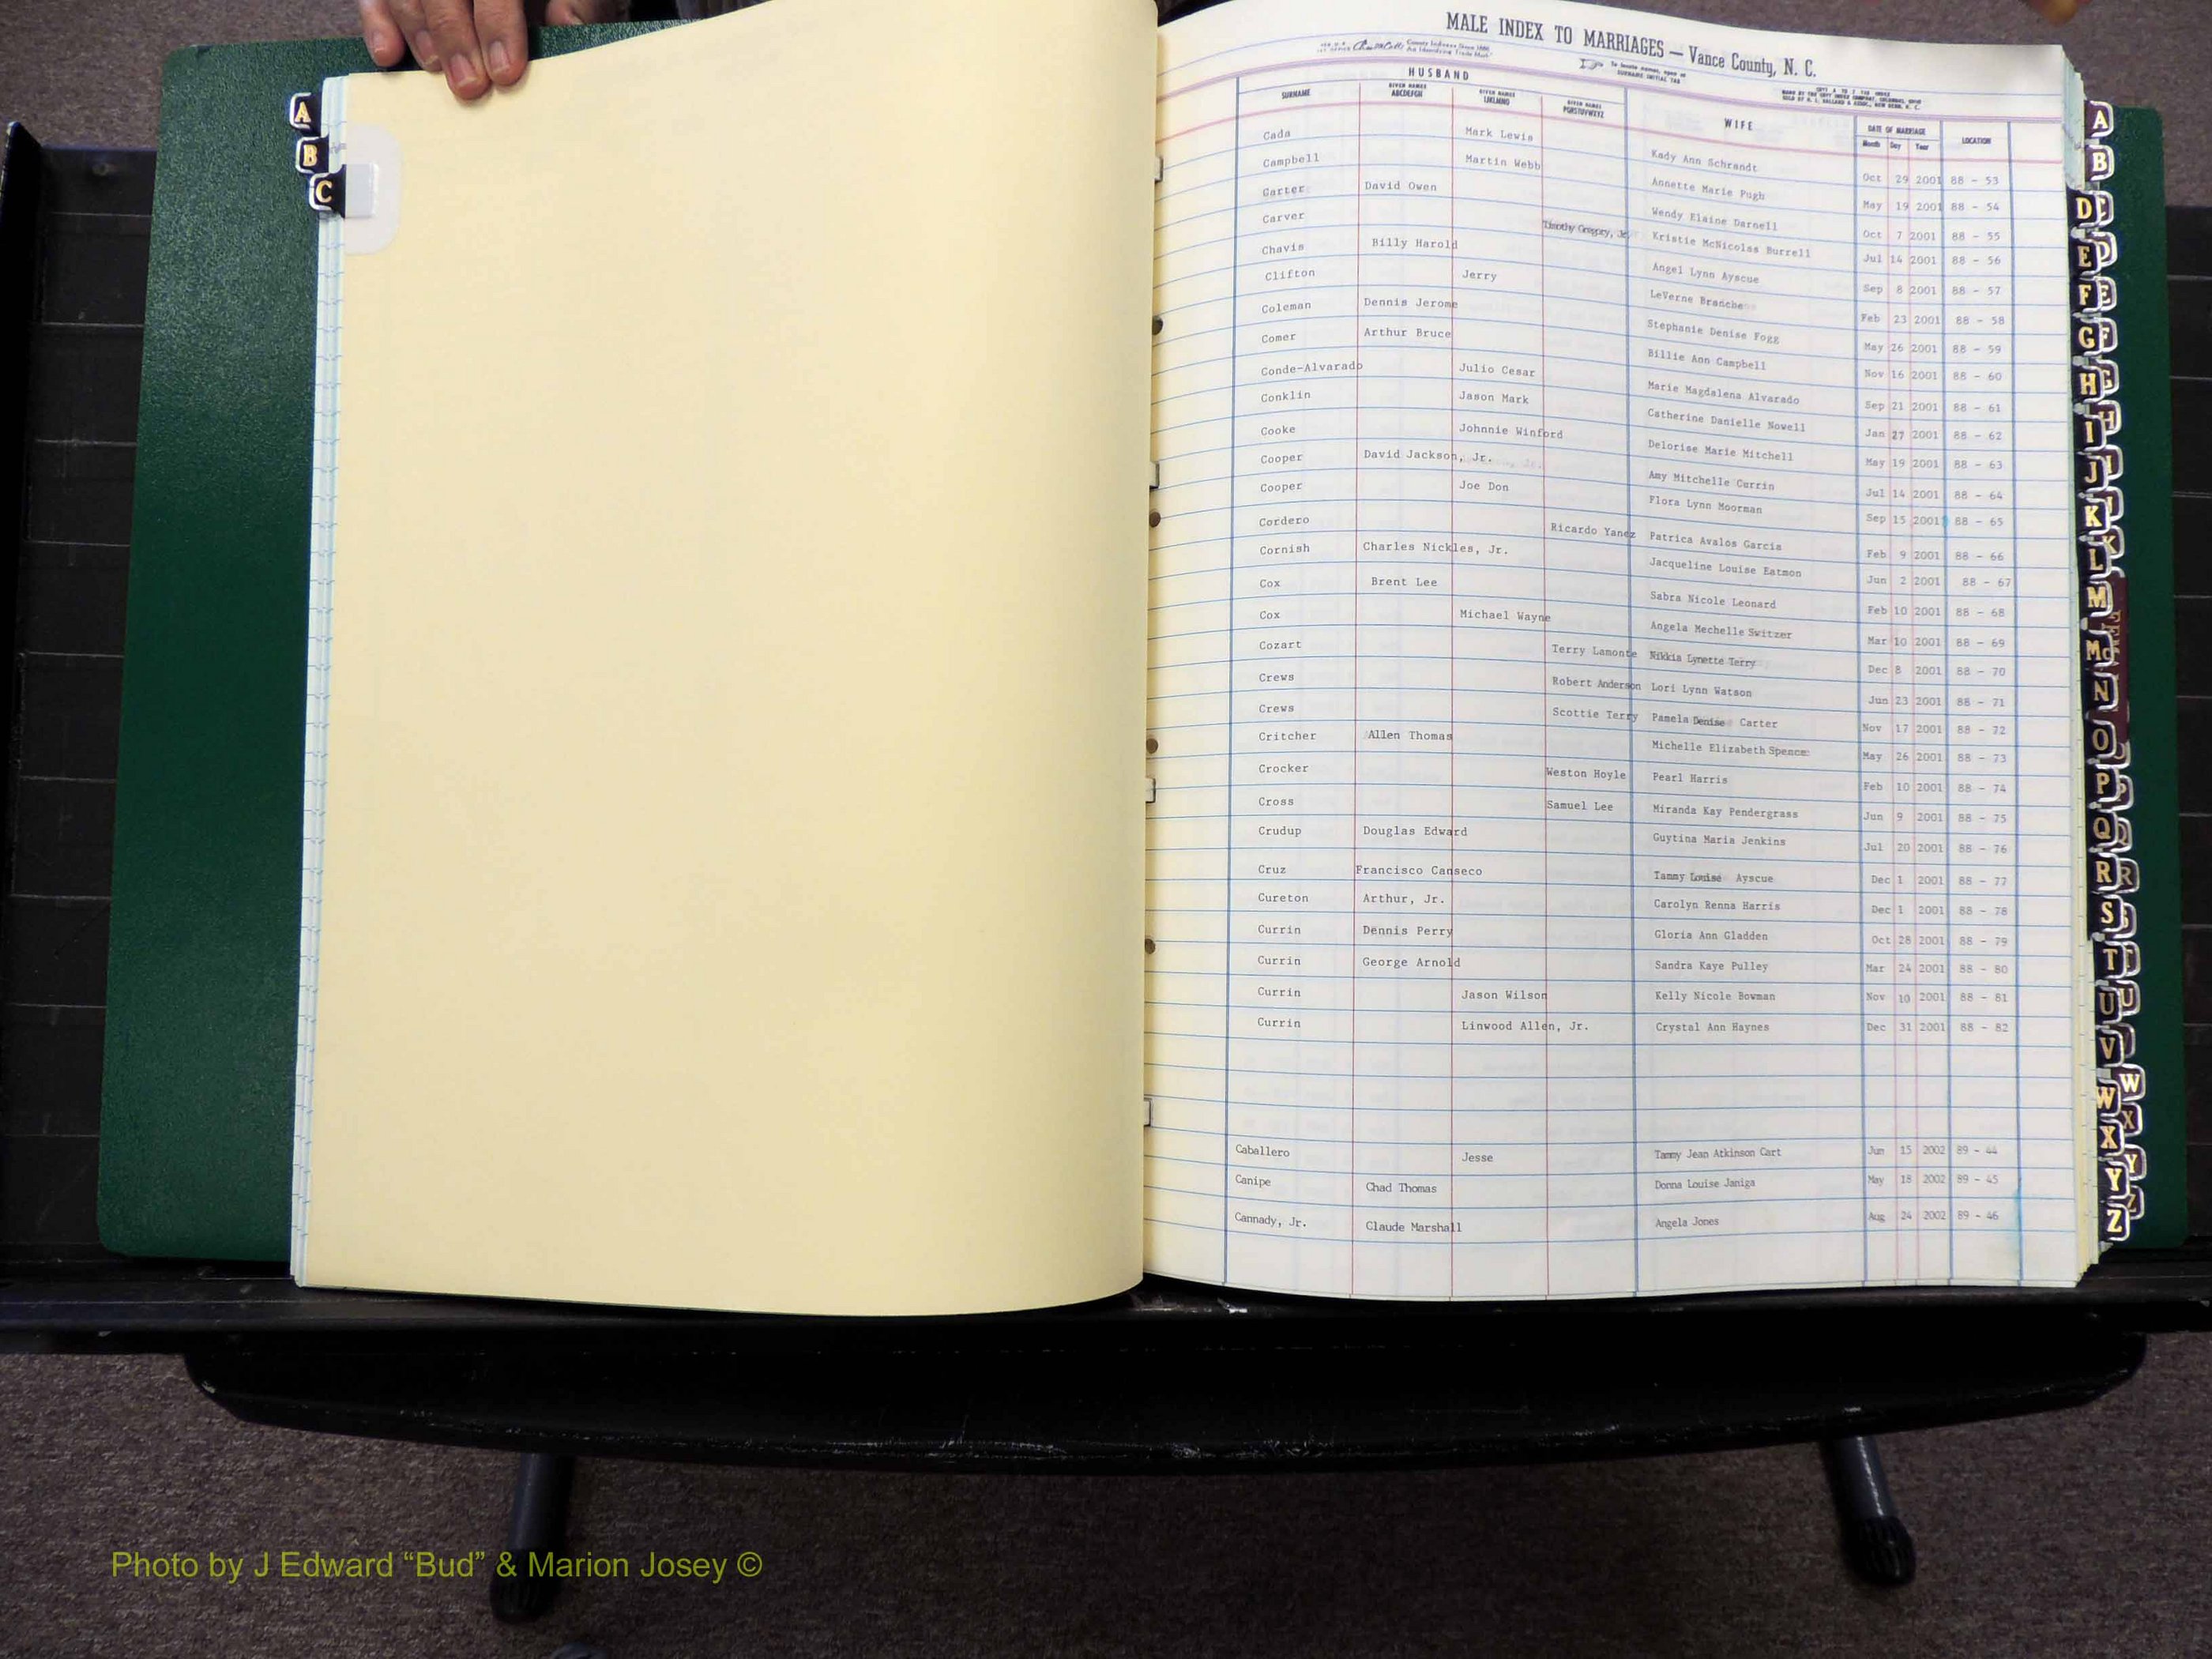 MALE INDEX TO MARRIAGES — Vance County, N. C.
HUSBAND
SURNAME GIVEN NAMES ABCDEFGH GIVEN NAMES IJKLMNO GIVEN NAMES PQRSTUVWXYZ WIFE DATE OF MARRIAGE Month Day Year LOCATION
Cada Mark Lewis Kady Ann Schrandt Oct 29 2001 88 - 53
Campbell Martin Webb Annette Marie Pugh May 19 2001 88 - 54
Carter David Owen Wendy Elaine Darnell Oct 7 2001 88 - 55
Carver Timothy Gregory, Jr. Kristie McNicolas Burrell Jul 14 2001 88 - 56
Chavis Billy Harold Angel Lynn Ayscue Sep 8 2001 88 - 57
Clifton Jerry LeVerne Branche Feb 23 2001 88 - 58
Coleman Dennis Jerome Stephanie Denise Fogg May 26 2001 88 - 59
Comer Arthur Bruce Billie Ann Campbell Nov 16 2001 88 - 60
Conde-Alvarado Julio Cesar Marie Magdalena Alvarado Sep 21 2001 88 - 61
Conklin Jason Mark Catherine Danielle Nowell Jan 27 2001 88 - 62
Cooke Johnnie Winford Delorise Marie Mitchell May 19 2001 88 - 63
Cooper David Jackson, Jr. Amy Mitchelle Currin Jul 14 2001 88 - 64
Cooper Joe Don Flora Lynn Moorman Sep 15 2001 88 - 65
Cordero Ricardo Yanez Patrica Avalos Garcia Feb 9 2001 88 - 66
Cornish Charles Nickles, Jr. Jacqueline Louise Eatmon Jun 2 2001 88 - 67
Cox Brent Lee Sabra Nicole Leonard Feb 10 2001 88 - 68
Cox Michael Wayne Angela Mechelle Switzer Mar 10 2001 88 - 69
Cozart Terry Lamonte Nikkia Lynette Terry Dec 8 2001 88 - 70
Crews Robert Anderson Lori Lynn Watson Jun 23 2001 88 - 71
Crews Scottie Terry Pamela Denise Carter Nov 17 2001 88 - 72
Critcher Allen Thomas Michelle Elizabeth Spence May 26 2001 88 - 73
Crocker Weston Hoyle Pearl Harris Feb 10 2001 88 - 74
Cross Samuel Lee Miranda Kay Pendergrass Jun 9 2001 88 - 75
Crudup Douglas Edward Guytina Maria Jenkins Jul 20 2001 88 - 76
Cruz Francisco Canseco Tammy Louise Ayscue Dec 1 2001 88 - 77
Cureton Arthur, Jr. Carolyn Renna Harris Dec 1 2001 88 - 78
Currin Dennis Perry Gloria Ann Gladden Oct 28 2001 88 - 79
Currin George Arnold Sandra Kaye Pulley Mar 24 2001 88 - 80
Currin Jason Wilson Kelly Nicole Bowman Nov 10 2001 88 - 81
Currin Linwood Allen, Jr. Crystal Ann Haynes Dec 31 2001 88 - 82
Caballero Jesse Tammy Jean Atkinson Cart Jun 15 2002 89 - 44
Canipe Chad Thomas Donna Louise Janiga May 18 2002 89 - 45
Cannady, Jr. Claude Marshall Angela Jones Aug 24 2002 89 - 46
A
B
C
A
B
D
E D
F E
G F
H G
I H
J I
K
L K
M
Mc
N
O
P P
Q Q
R R
S S
T
U U
V
W W
X X
Y Y
Z Z
Photo by J Edward “Bud” & Marion Josey ©